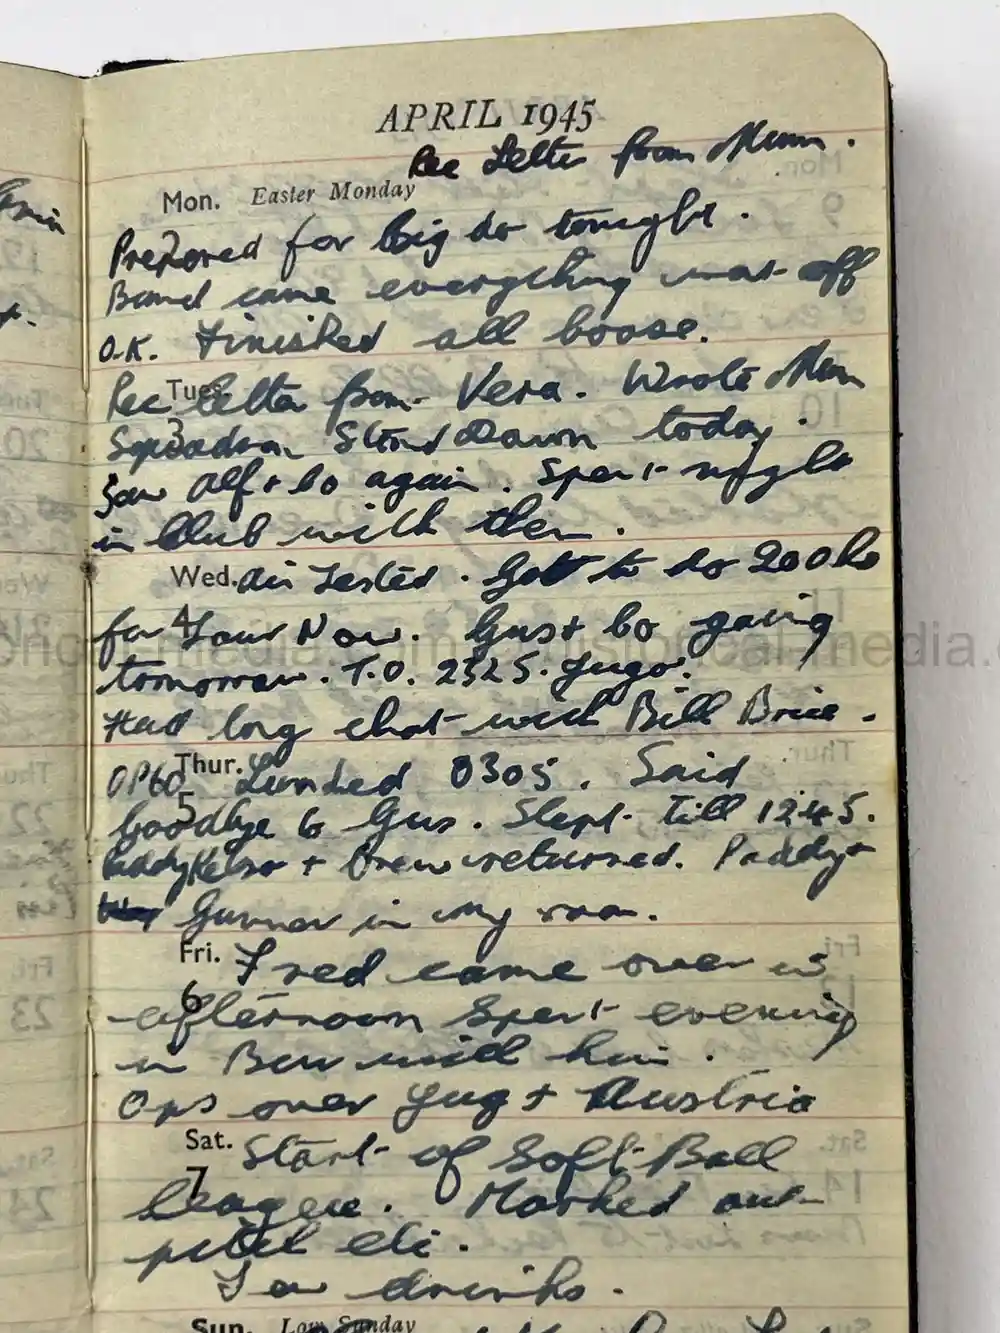 APRIL 1945
Rec Letter from Mum.
Mon. Easter Monday
2
Prepared for big do tonight.
Band came everything was off
O.K. Finished all boose.
Tues.
3
Rec letter from Vera. Wrote Mum
Squadron Stand Down today.
Saw Alf + Co again. Spent night
in Club with them.
Wed. Air Tested. Got to do 200 hrs
4
for Tour Now. Gus + Co going
tomorrow. T.O. 2325. Jugo.
Had long chat with Bill Brice.
Thur.
5
OP60 Landed 0305. Said
Goodbye to Gus. Slept till 1245.
Paddy Kelso + Crew returned. Paddy +
Gunner in my room.
Fri. Fred came over in
6
afternoon Spent evening
in Bar with him.
Ops over Jug + Austria
Sat. Start of Soft-Ball
7
league. Marked out
pitch etc.
Few drinks.
Sun. Low Sunday